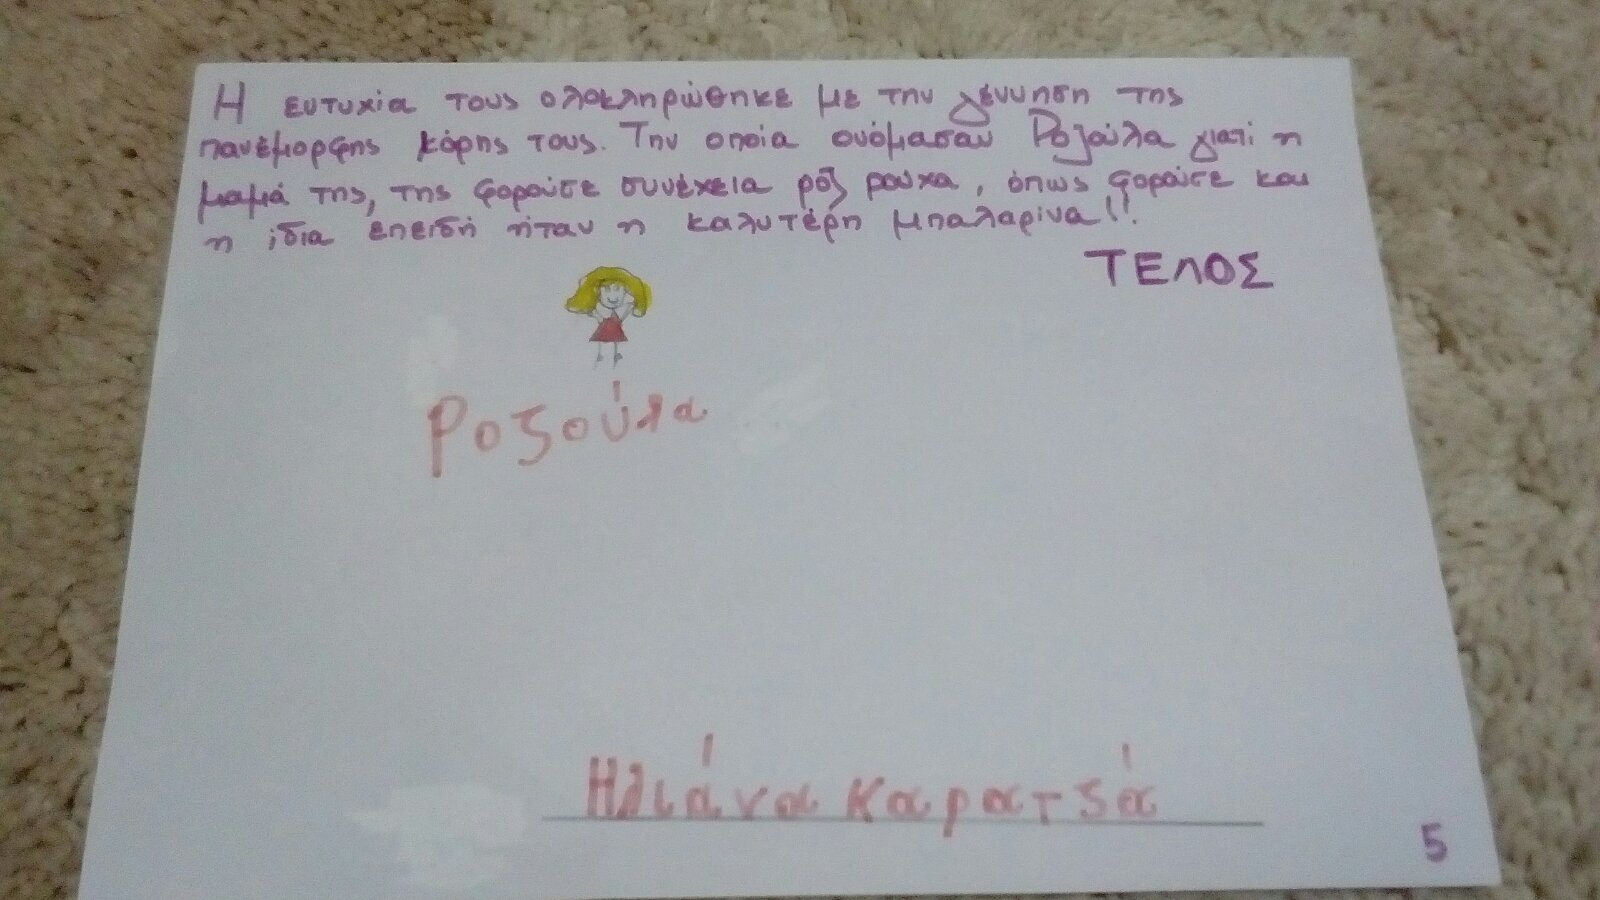 Η ευτυχία τους ολοκληρώθηκε με την γέννηση της
πανέμορφης κόρης τους. Την οποία ονόμασαν Ροζούλα γιατί η
μαμά της, της φορούσε συνέχεια ρόζ ρούχα, όπως φορούσε και
η ίδια επειδή ήταν η καλυτέρη μπαλαρίνα!!
ΤΕΛΟΣ
Ροζούλα
Ηλιάνα Καρατζά
5